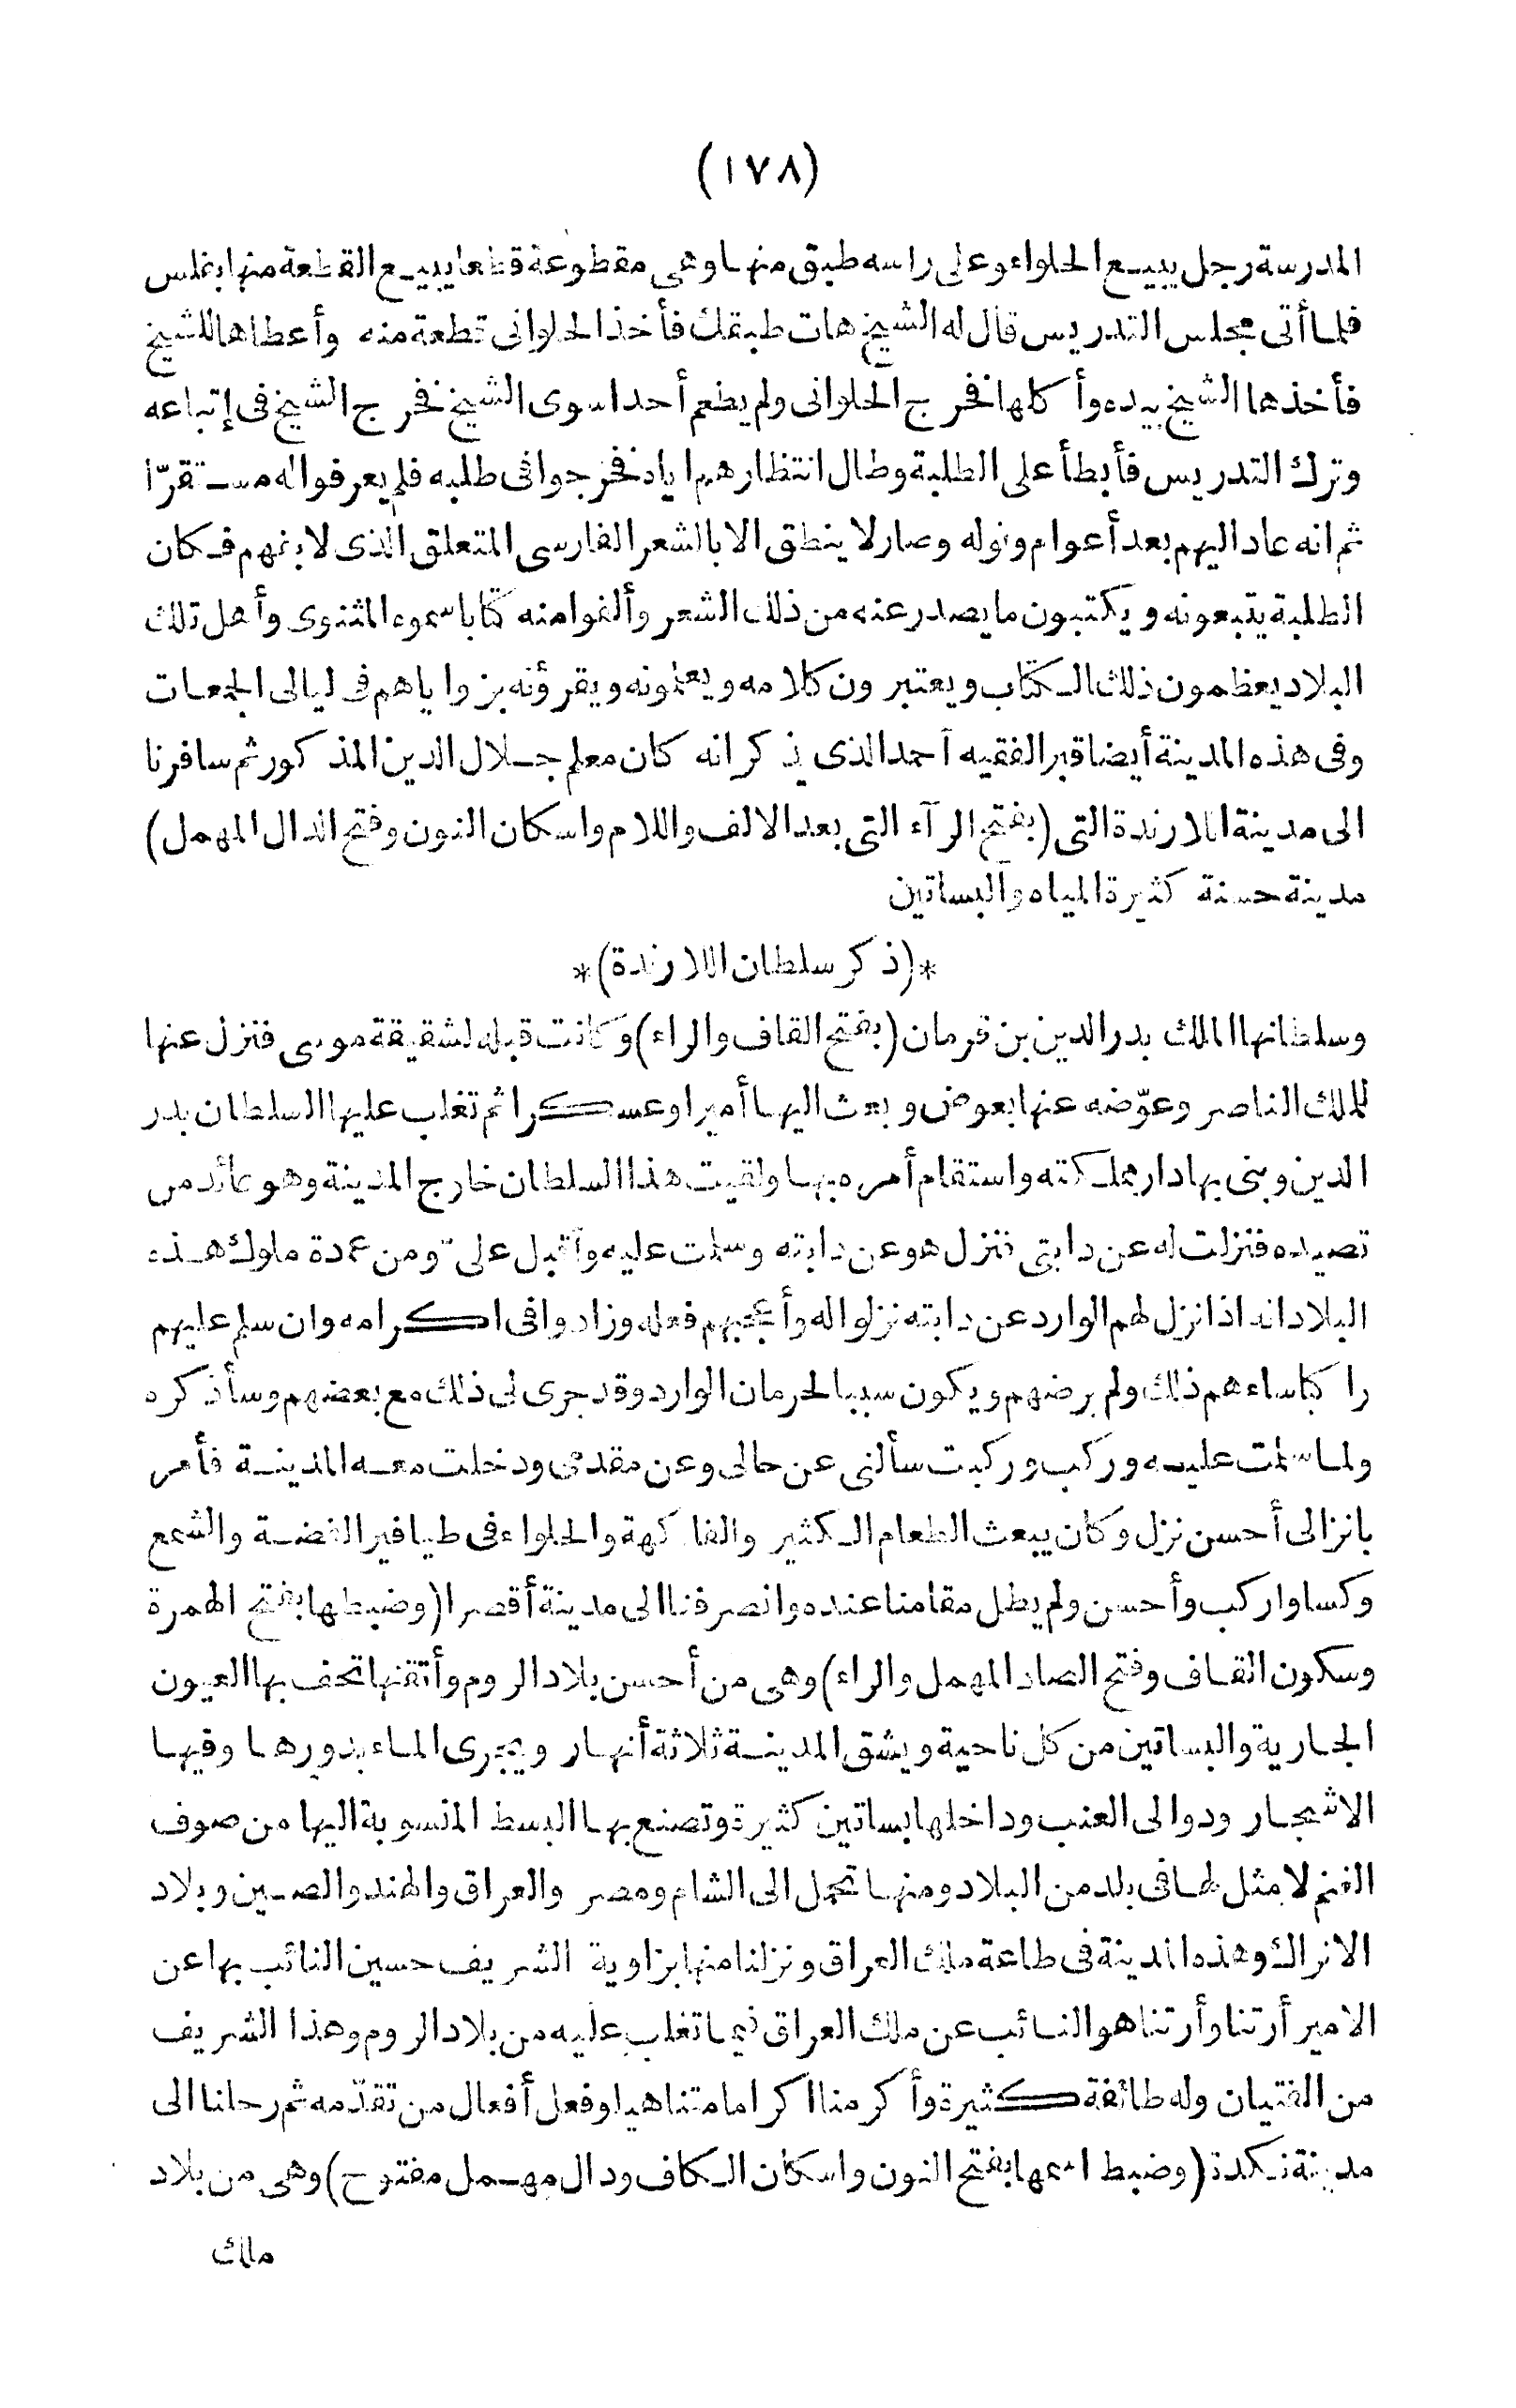 (١٧٨)
المدرسة رجل يبيع الحلواء وعلى راسه طبق منها وهى مقطوعة قطعا يبيع القطعة منها بفلس
فلما أتى مجلس التدريس قال له الشيخ هات طبقك فأخذ الحلوانى قطعة منه وأعطاها للشيخ
فأخذها الشيخ بيده وأكلها فخرج الحلوانى ولم يطعم أحدا سوى الشيخ فخرج الشيخ فى إتباعه
وترك التدريس فأبطأ على الطلبة وطال انتظارهم اياه فخرجوا فى طلبه فلم يعرفوا له مستقرّا
ثم انه عاد اليهم بعد أعوام وتوله وصار لا ينطق الا بالشعر الفارسى المتعلق الذى لا يفهم فكان
الطلبة يتبعونه ويكتبون ما يصدر عنه من ذلك الشعر وألفوا منه كتابا سموه المثنوى وأهل تلك
البلاد يعظمون ذلك الكتاب ويعتبرون كلامه ويعلمونه ويقرؤنه بزواياهم فى ليالى الجمعات
وفى هذه المدينة أيضا قبر الفقيه أحمد الذى يذكر انه كان معلم جلال الدين المذكور ثم سافرنا
الى مدينة اللارندة التى (بفتح الرآء التى بعد الالف واللام واسكان النون وفتح الدال المهمل)
مدينة حسنة كثيرة المياه والبساتين
*(ذكر سلطان اللارندة)*
وسلطانها الملك بدر الدين بن قرمان (بفتح القاف والراء) وكانت قبله لشقيقة موسى فنزل عنها
للملك الناصر وعوّضه عنها بعوض وبعث اليها أميرا وعسكرا ثم تغلب عليها السلطان بدر
الدين وبنى بها دار مملكته واستقام أمره بها ولقيت هذا السلطان خارج المدينة وهو عائد من
تصيده فنزلت له عن دابتى فنزل هو عن دابته وسلمت عليه وأقبل علىّ ومن عمدة ملوك هذه
البلاد انه اذا نزل لهم الوارد عن دابته نزلوا له وأعجبهم فعله وزادوا فى اكرامه وان سلم عليهم
راكبا ساءهم ذلك ولم يرضهم ويكون سببا لحرمان الوارد وقد جرى لى ذلك مع بعضهم وسأذكره
ولما سلمت عليه وركب وركبت سألنى عن حالى وعن مقدمى ودخلت معه المدينة فأمر
بانزالى أحسن نزل وكان يبعث الطعام الكثير والفاكهة والحلواء فى طيافير الفضة والشمع
وكسا واركب وأحسن ولم يطل مقامنا عنده وانصرفنا الى مدينة أقصرا (وضبطها بفتح الهمزة
وسكون القاف وفتح الصاد المهمل والراء) وهى من أحسن بلاد الروم وأتقنها تحف بها العيون
الجارية والبساتين من كل ناحية ويشق المدينة ثلاثة أنهار ويجرى الماء بدورها وفيها
الاشجار ودوالى العنب وداخلها بساتين كثيرة وتصنع بها البسط المنسوبة اليها من صوف
الغنم لا مثل لها فى بلد من البلاد ومنها تحمل الى الشام ومصر والعراق والهند والصين وبلاد
الاتراك وهذه المدينة فى طاعة ملك العراق ونزلنا منها بزاوية الشريف حسين النائب بها عن
الامير أرتنا وأرتنا هو النائب عن ملك العراق فيما تغلب عليه من بلاد الروم وهذا الشريف
من الفتيان وله طائفة كثيرة وأكرمنا اكراما متناهيا وفعل أفعال من تقدّمه ثم رحلنا الى
مدينة نكدة (وضبط اسمها بفتح النون واسكان الكاف ودال مهمل مفتوح) وهى من بلاد
ملك